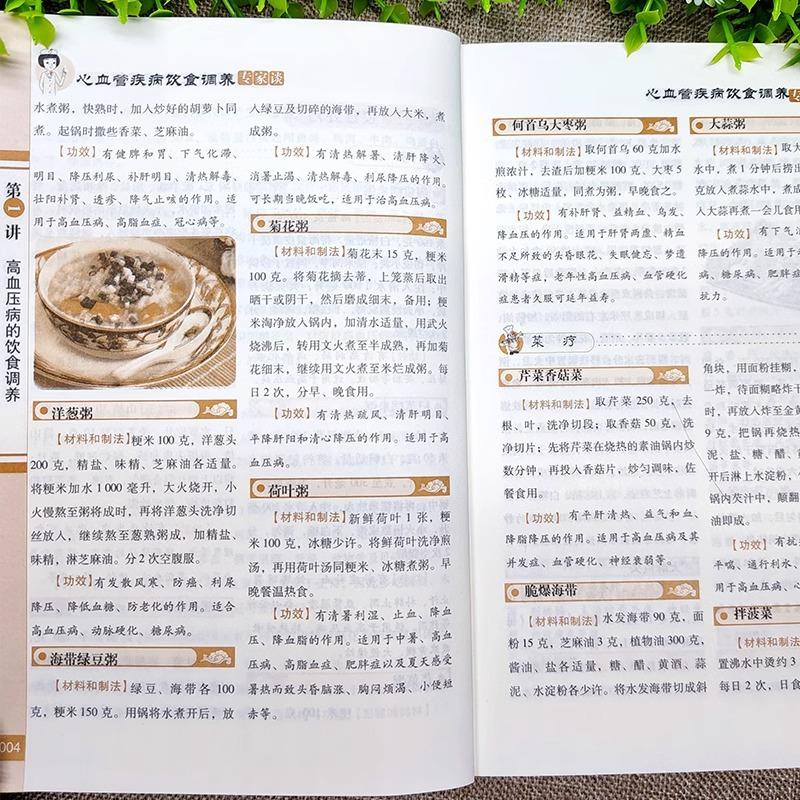 心血管疾病饮食调养专家谈
第一讲 高血压病的饮食调养
水煮粥，快熟时，加入炒好的胡萝卜同
煮。起锅时撒些香菜、芝麻油。
【功效】有健脾和胃、下气化滞、
明目、降压利尿、补肝明目、清热解毒、
壮阳补肾、透疹、降气止咳的作用。适
用于高血压病、高脂血症、冠心病等。
洋葱粥
【材料和制法】粳米 100 克，洋葱头
200 克，精盐、味精、芝麻油各适量。
将粳米加水 1 000 毫升，大火烧开，小
火慢熬至粥将成时，再将洋葱头洗净切
丝放入，继续熬至葱熟粥成，加精盐、
味精，淋芝麻油。分 2 次空腹服。
【功效】有发散风寒、防癌、利尿
降压、降低血糖、防老化的作用。适合
高血压病、动脉硬化、糖尿病。
海带绿豆粥
【材料和制法】绿豆、海带各 100
克，粳米 150 克。用锅将水煮开后，放
004
入绿豆及切碎的海带，再放入大米，煮
成粥。
【功效】有清热解暑、清肝降火、
消暑止渴、清热解毒、利尿降压的作用。
可长期当晚饭吃，适用于治高血压病。
菊花粥
【材料和制法】菊花末 15 克，粳米
100 克。将菊花摘去蒂，上笼蒸后取出
晒干或阴干，然后磨成细末，备用；粳
米淘净放入锅内，加清水适量，用武火
烧沸后，转用文火煮至半成熟，再加菊
花细末，继续用文火煮至米烂成粥。每
日 2 次，分早、晚食用。
【功效】有清热疏风、清肝明目、
平降肝阳和清心降压的作用。适用于高
血压病。
荷叶粥
【材料和制法】新鲜荷叶 1 张，粳
米 100 克，冰糖少许。将鲜荷叶洗净煎
汤，再用荷叶汤同粳米、冰糖煮粥。早
晚餐温热食。
【功效】有清暑利湿、止血、降血
压、降血脂的作用。适用于中暑、高血
压病、高脂血症、肥胖症以及夏天感受
暑热而致头昏脑涨、胸闷烦渴、小便短
赤等。
心血管疾病饮食调养
何首乌大枣粥
【材料和制法】取何首乌 60 克加水
煎浓汁，去渣后加粳米 100 克、大枣 5
枚、冰糖适量，同煮为粥，早晚食之。
【功效】有补肝肾、益精血、乌发、
降血压的作用。适用于肝肾两虚、精血
不足所致的头昏眼花、失眠健忘、梦遗
滑精等症，老年性高血压病、血管硬化
症患者久服可延年益寿。
菜 疗
芹菜香菇菜
【材料和制法】取芹菜 250 克，去
根、叶，洗净切段；取香菇 50 克，洗
净切片；先将芹菜在烧热的素油锅内炒
数分钟，再投入香菇片，炒匀调味，佐
餐食用。
【功效】有平肝清热、益气和血、
降脂降压的作用。适用于高血压病及其
并发症、血管硬化、神经衰弱等。
脆爆海带
【材料和制法】水发海带 90 克，面
粉 15 克，芝麻油 3 克，植物油 300 克，
酱油、盐各适量，糖、醋、黄酒、蒜
泥、水淀粉各少许。将水发海带切成斜
大蒜粥
【材料和制法】取大
水中，煮 1 分钟后捞出
克放入煮蒜水中，煮成
入大蒜再煮一会儿食用
【功效】有下气消
降压的作用。适用于
病、糖尿病、肥胖症
抗力。
角块，用面粉挂糊，
一炸，待面糊略炸干
时，再放入炸至金黄
9 克，把锅再烧热
泥、盐、糖、醋、酱
开后淋上水淀粉，
锅内芡汁中，颠翻
油即成。
【功效】有抗
平喘、通行利水、
用于高血压病、心
拌菠菜
【材料和制法】
置沸水中烫约 3
每日 2 次，日食